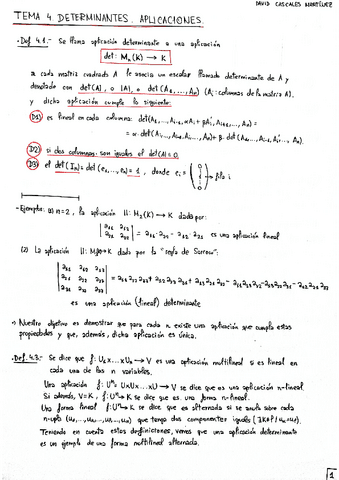 DAVID CASCALES MARTÍNEZ
TEMA 4. DETERMINANTES. APLICACIONES.
-Def 4.1- Se llama aplicación determinante a una aplicación
det: Mₙ(K) → K
a cada matriz cuadrada A le asocia un escalar llamado determinante de A y
denotado con det(A), o |A|, o det(A₁,...,Aₙ) (Aᵢ: columnas de la matriz A).
y dicha aplicación cumple lo siguiente:
(D1) es lineal en cada columna: det(A₁,...,Aᵢ₋₁, αAᵢ + βAᵢ', Aᵢ₊₁,..., Aₙ) =
= α·det(A₁,...,Aᵢ₋₁, Aᵢ,..., Aₙ) + β·det(A₁,...,Aᵢ₋₁, Aᵢ',..., Aₙ).
(D2) si dos columnas son iguales el det(A)=0.
(D3) el det(Iₙ) = det(e₁,...,eₙ) = 1, donde eᵢ = (0 ⋮ 1 ⋮ 0) → fila i
-Ejemplo: (1) n=2, la aplicación ||: M₂(K) → K dada por:
|a₁₁ a₁₂|
|a₂₁ a₂₂| = a₁₁·a₂₂ - a₁₂·a₂₁ es una aplicación lineal
(2) La aplicación ||: → K dada por la "regla de Sarrus":
|a₁₁ a₁₂ a₁₃|
|a₂₁ a₂₂ a₂₃| =
|a₃₁ a₃₂ a₃₃|
es una aplicación (lineal) determinante
Nuestro objetivo es demostrar que para cada n existe una aplicación que cumpla estas
propiedades y que, además, dicha aplicación es única.
-Def. 4.3- Se dice que f: U₁x...xUₙ → V es una aplicación multilineal si es lineal en
cada una de las n variables.
Una aplicación f: Uⁿ = UxUx...xU → V se dice que es una aplicación n-lineal.
Si además, V=K, f: Uⁿ → K se dice que es una forma n-lineal.
Una forma lineal f: Uⁿ → K se dice que es alternada si se anula sobre cada
n-upla (u₁,...,uₙ) que tenga dos componentes iguales
Teniendo en cuenta estas definiciones, vemos que una aplicación determinante
es un ejemplo de una forma multilineal alternada.
1